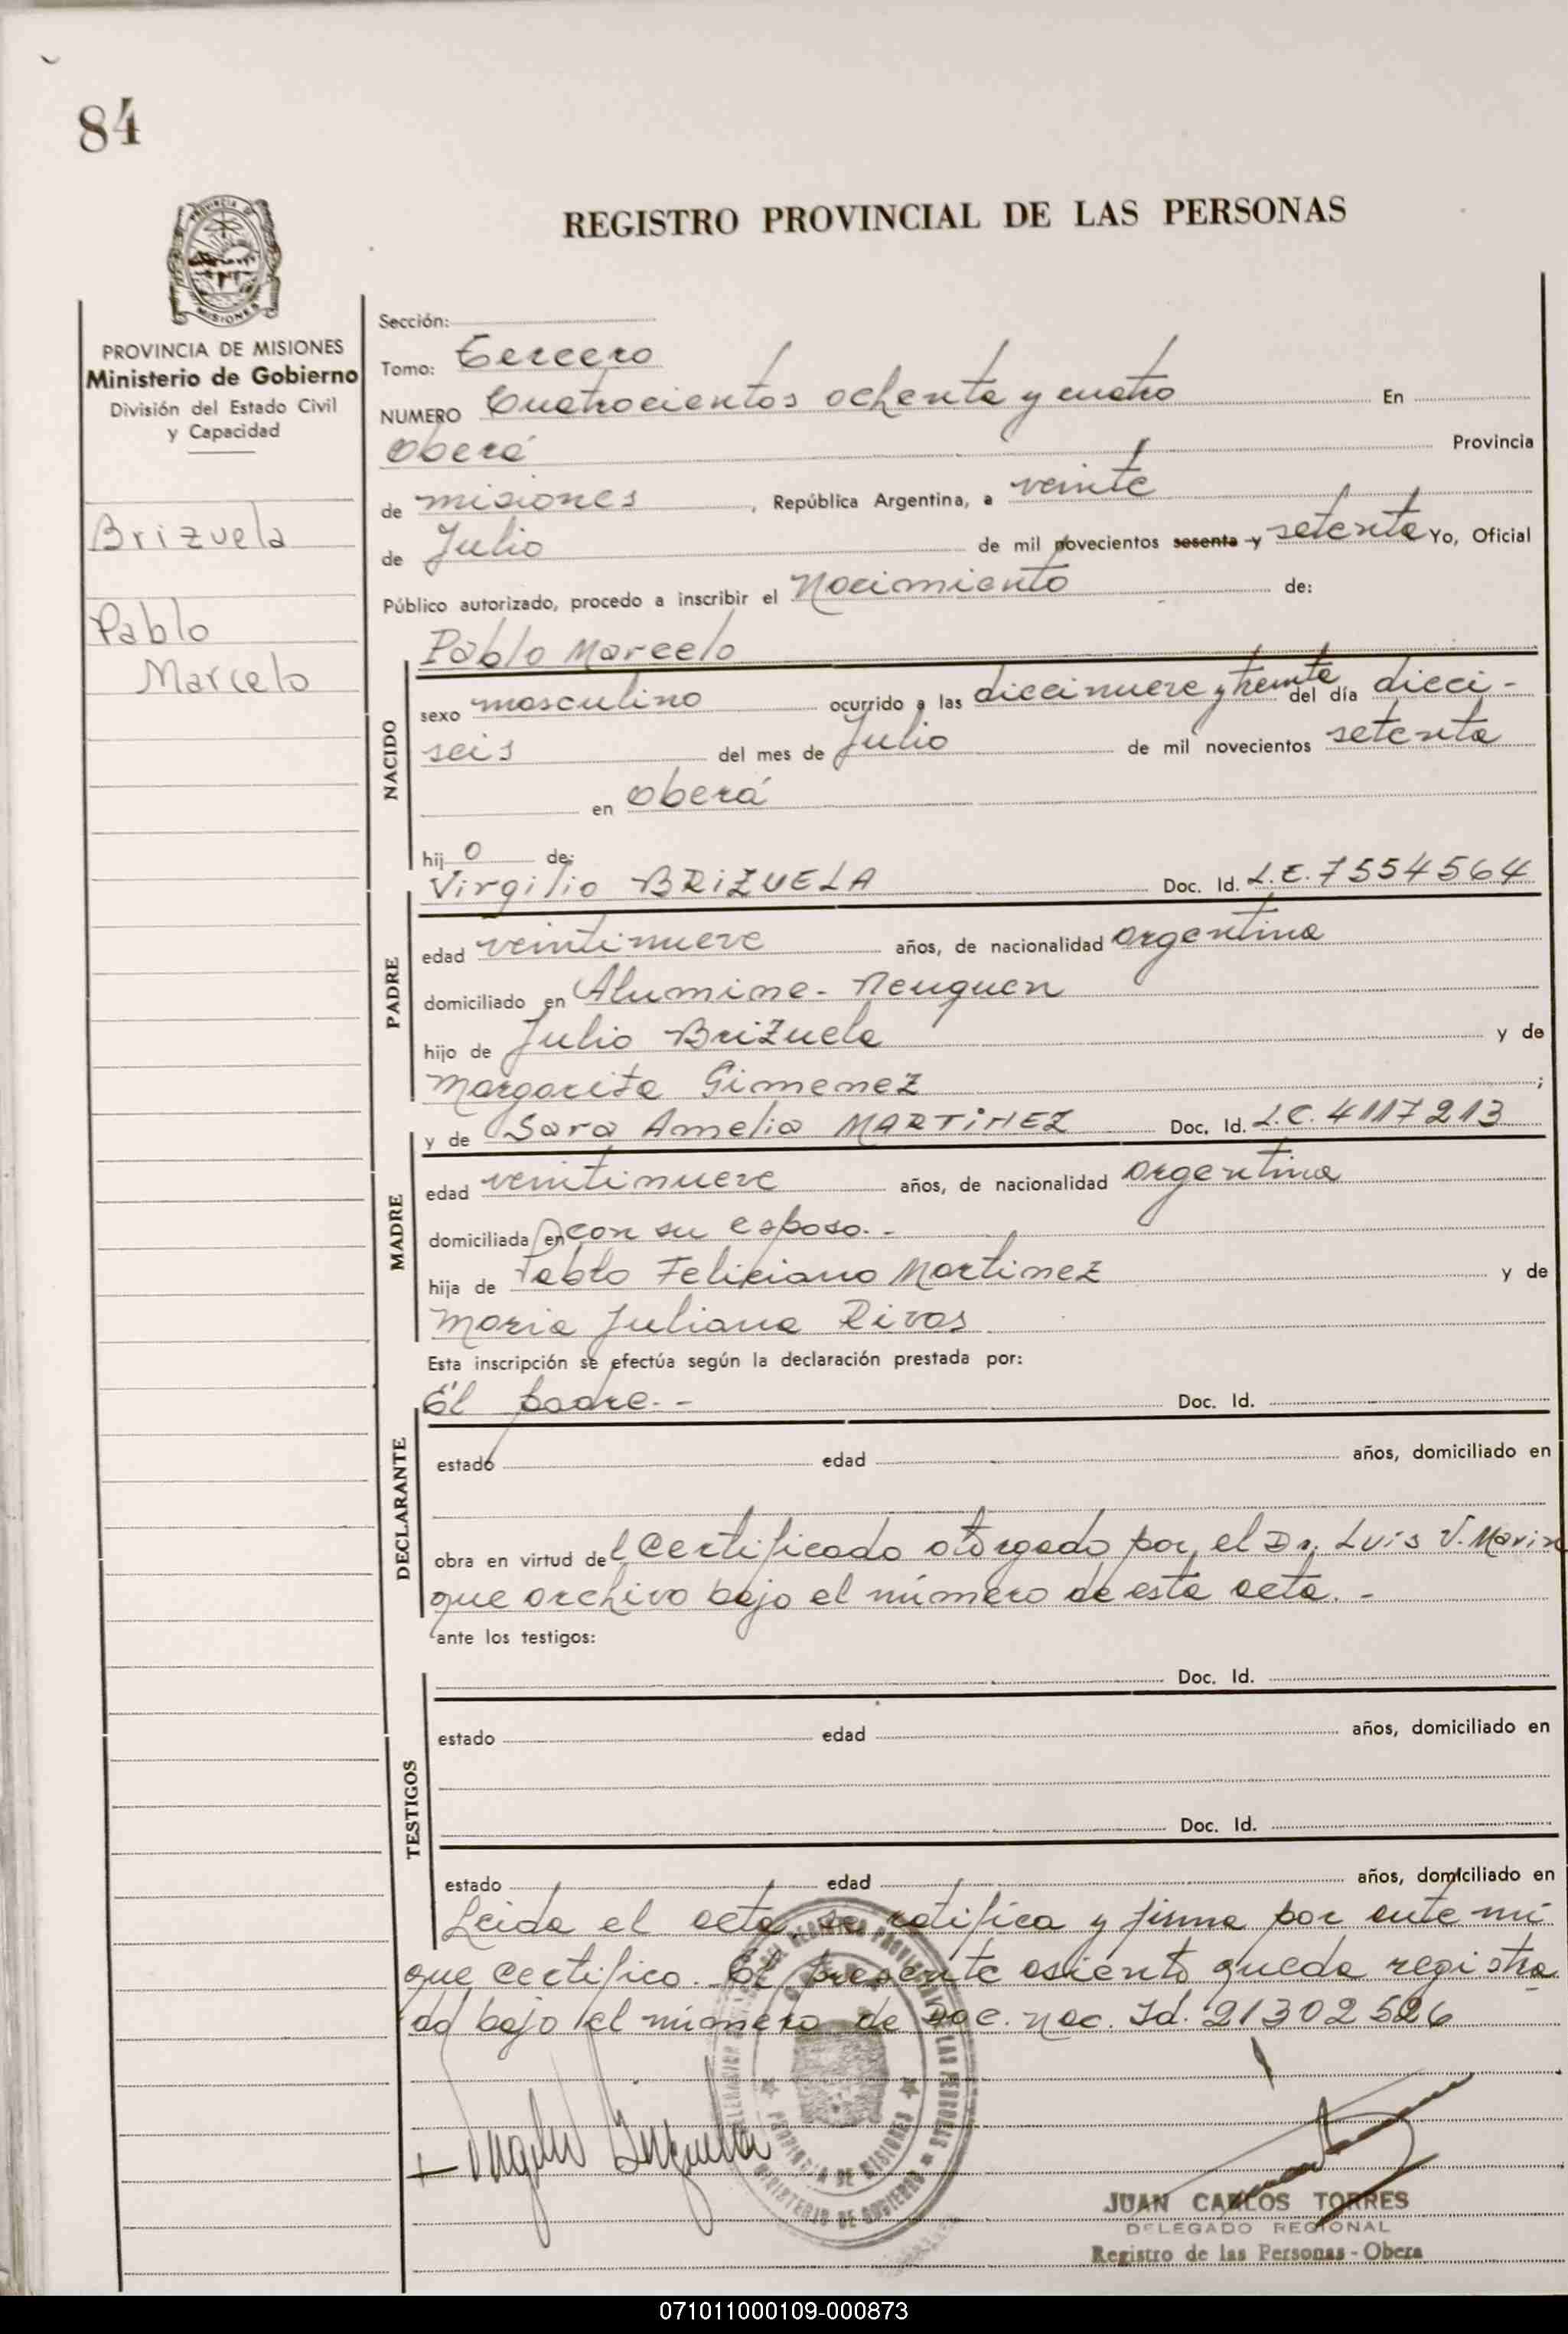 84
PROVINCIA DE MISIONES
REGISTRO PROVINCIAL DE LAS PERSONAS
PROVINCIA DE MISIONES
Ministerio de Gobierno
División del Estado Civil
y Capacidad
Brizuela
Pablo
Marcelo
Sección:
Tomo: Tercero
NUMERO Cuatrocientos ochenta y cuatro En
Oberá Provincia
de misiones, República Argentina, a veinte
de Julio de mil novecientos sesenta y setenta Yo, Oficial
Público autorizado, procedo a inscribir el Nacimiento de:
Pablo Marcelo
NACIDO
sexo masculino ocurrido a las diecinueve y treinta del día dieci-
seis del mes de Julio de mil novecientos setenta
en Oberá
hijo de:
Virgilio BRIZUELA Doc. Id. L.E. 7554564
PADRE
edad veintinueve años, de nacionalidad argentina
domiciliado en Alumine - Neuquen
hijo de Julio Brizuela y de
Margarita Gimenez ;
y de Sara Amelia MARTINEZ Doc. Id. L.C. 4117213
MADRE
edad veintinueve años, de nacionalidad argentina
domiciliada en con su esposo. -
hija de Pablo Feliciano Martinez y de
Maria Juliana Rivas
Esta inscripción se efectúa según la declaración prestada por:
El padre. - Doc. Id.
DECLARANTE
estado edad años, domiciliado en
obra en virtud del Certificado otorgado por el Dr. Luis V. Marin
que archivo bajo el número de esta acta. -
ante los testigos:
Doc. Id.
TESTIGOS
estado edad años, domiciliado en
Doc. Id.
estado edad años, domiciliado en
Leida el acta, se ratifica y firma por ante mi
que certifico. El presente asiento queda registra
do bajo el número de Doc. nac. Id. 21302526
Virgilio Brizuela
PROVINCIA DE MISIONES
MINISTERIO DE GOBIERNO
JUAN CARLOS TORRES
DELEGADO REGIONAL
Registro de las Personas - Obera
071011000109-000873